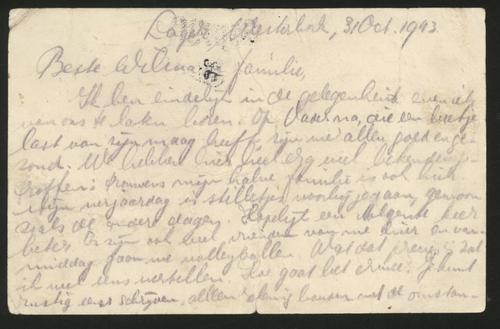 Lager Westerbork, 31 Oct. 1943.
Beste Wilma familie,
Ik ben eindelijk in de gelegenheid even iets
van ons te laten horen. Op na, die een beetje
last van zijn maag heeft, zijn we allen goed en ge-
zond. We hebben hier heel erg veel bekenden ge-
troffen: trouwens mijn halve familie is ook hier.
Mijn verjaardag is stilletjes voorbij gegaan, gewoon
zoals de andere dagen. Hopelijk een volgende keer
beter. Er zijn ook veel vrienden van me hier en van-
middag gaan we volleyballen. Wat dat precies is zal
ik wel eens vertellen. Hoe gaat het ermee. Je kunt
rustig eens schrijven, alleen rekening houden met de omstan-